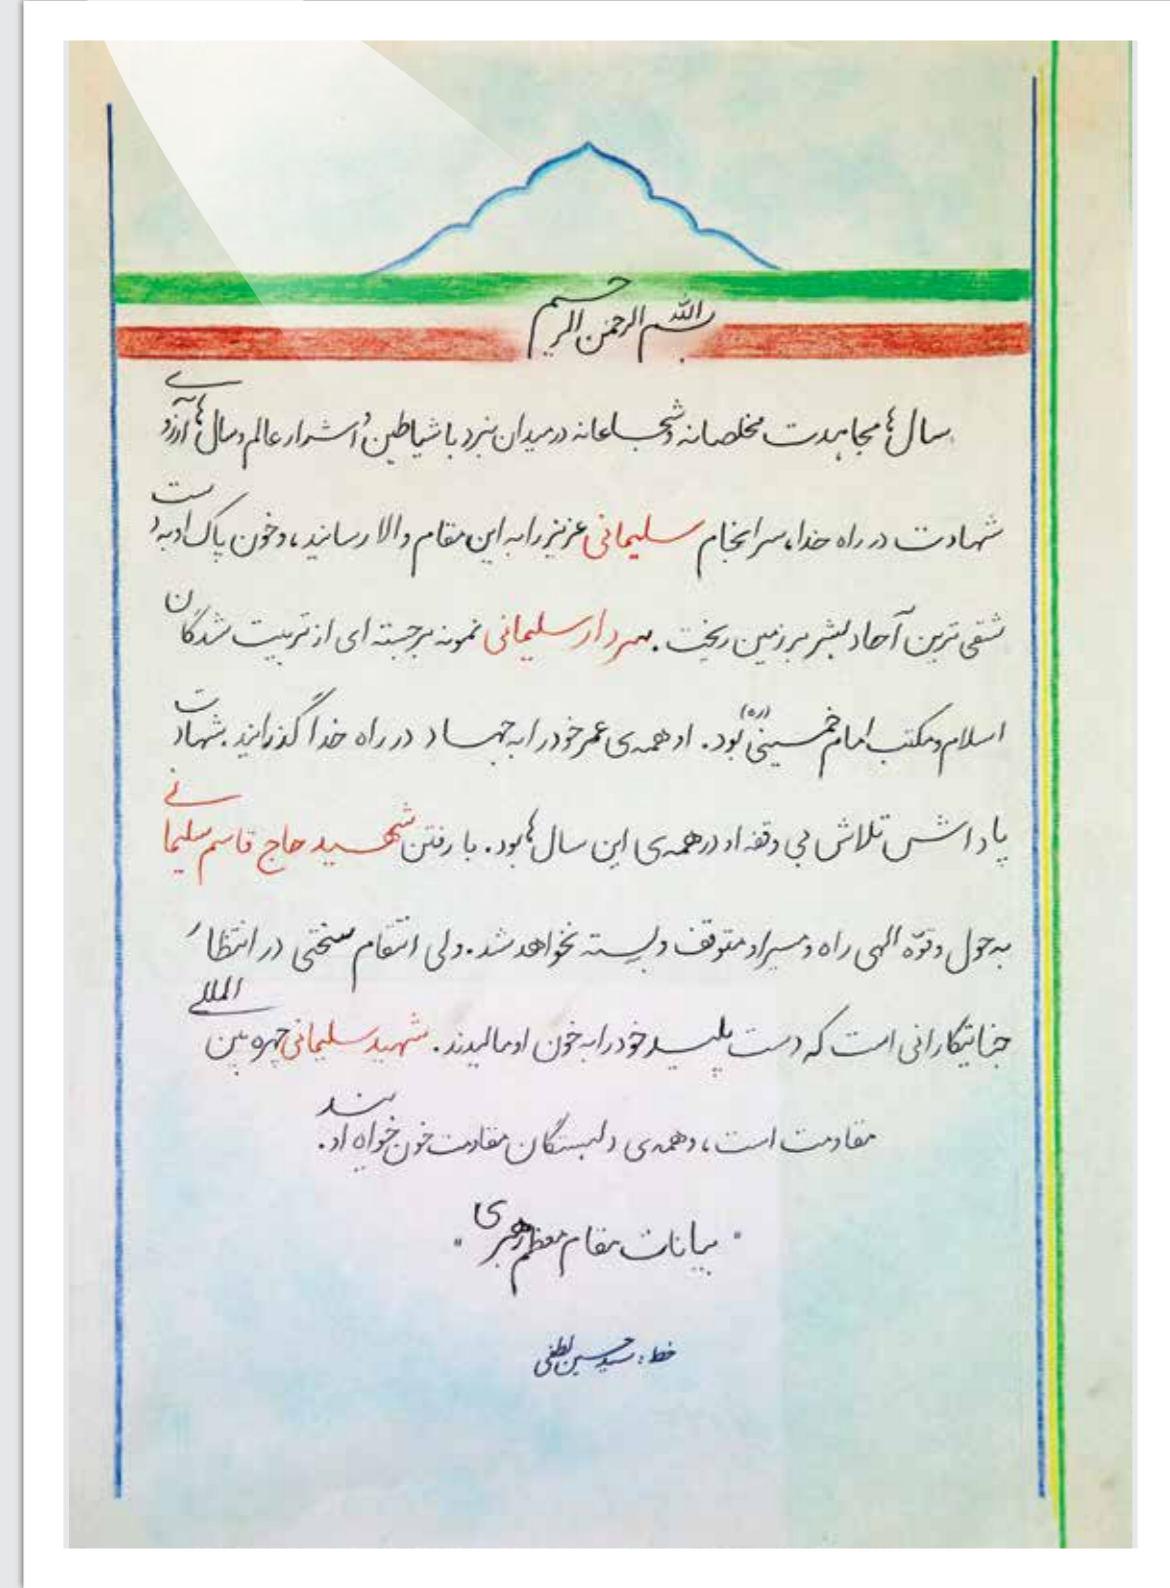 بسم الله الرحمن الرحیم
سال‌ها مجاهدت مخلصانه و شجاعانه در میدان نبرد با شیاطین و اشرار عالم و سال‌ها آرزوی
شهادت در راه خدا، سرانجام سلیمانی عزیز را به این مقام والا رسانید، و خون پاک او به دست
شقی ترین آحاد بشر بر زمین ریخت. سردار سلیمانی نمونه برجسته ای از تربیت شدگان
اسلام و مکتب امام خمینی (ره) بود. او همه‌ی عمر خود را به جهاد در راه خدا گذرانید. شهادت
پاداش تلاش بی وقفه او در همه‌ی این سال‌ها بود. با رفتن شهید حاج قاسم سلیمانی
به حول و قوّه الهی راه و مسیر او متوقف و بسته نخواهد شد. ولی انتقام سختی در انتظار
جنایتکارانی است که دست پلید خود را به خون او مالیدند. شهید سلیمانی چهره بین المللی
مقاومت است، و همه‌ی دلبستگان مقاومت خون خواه اویند.
" بیانات مقام معظم رهبری "
خط: سید حسین لطفی